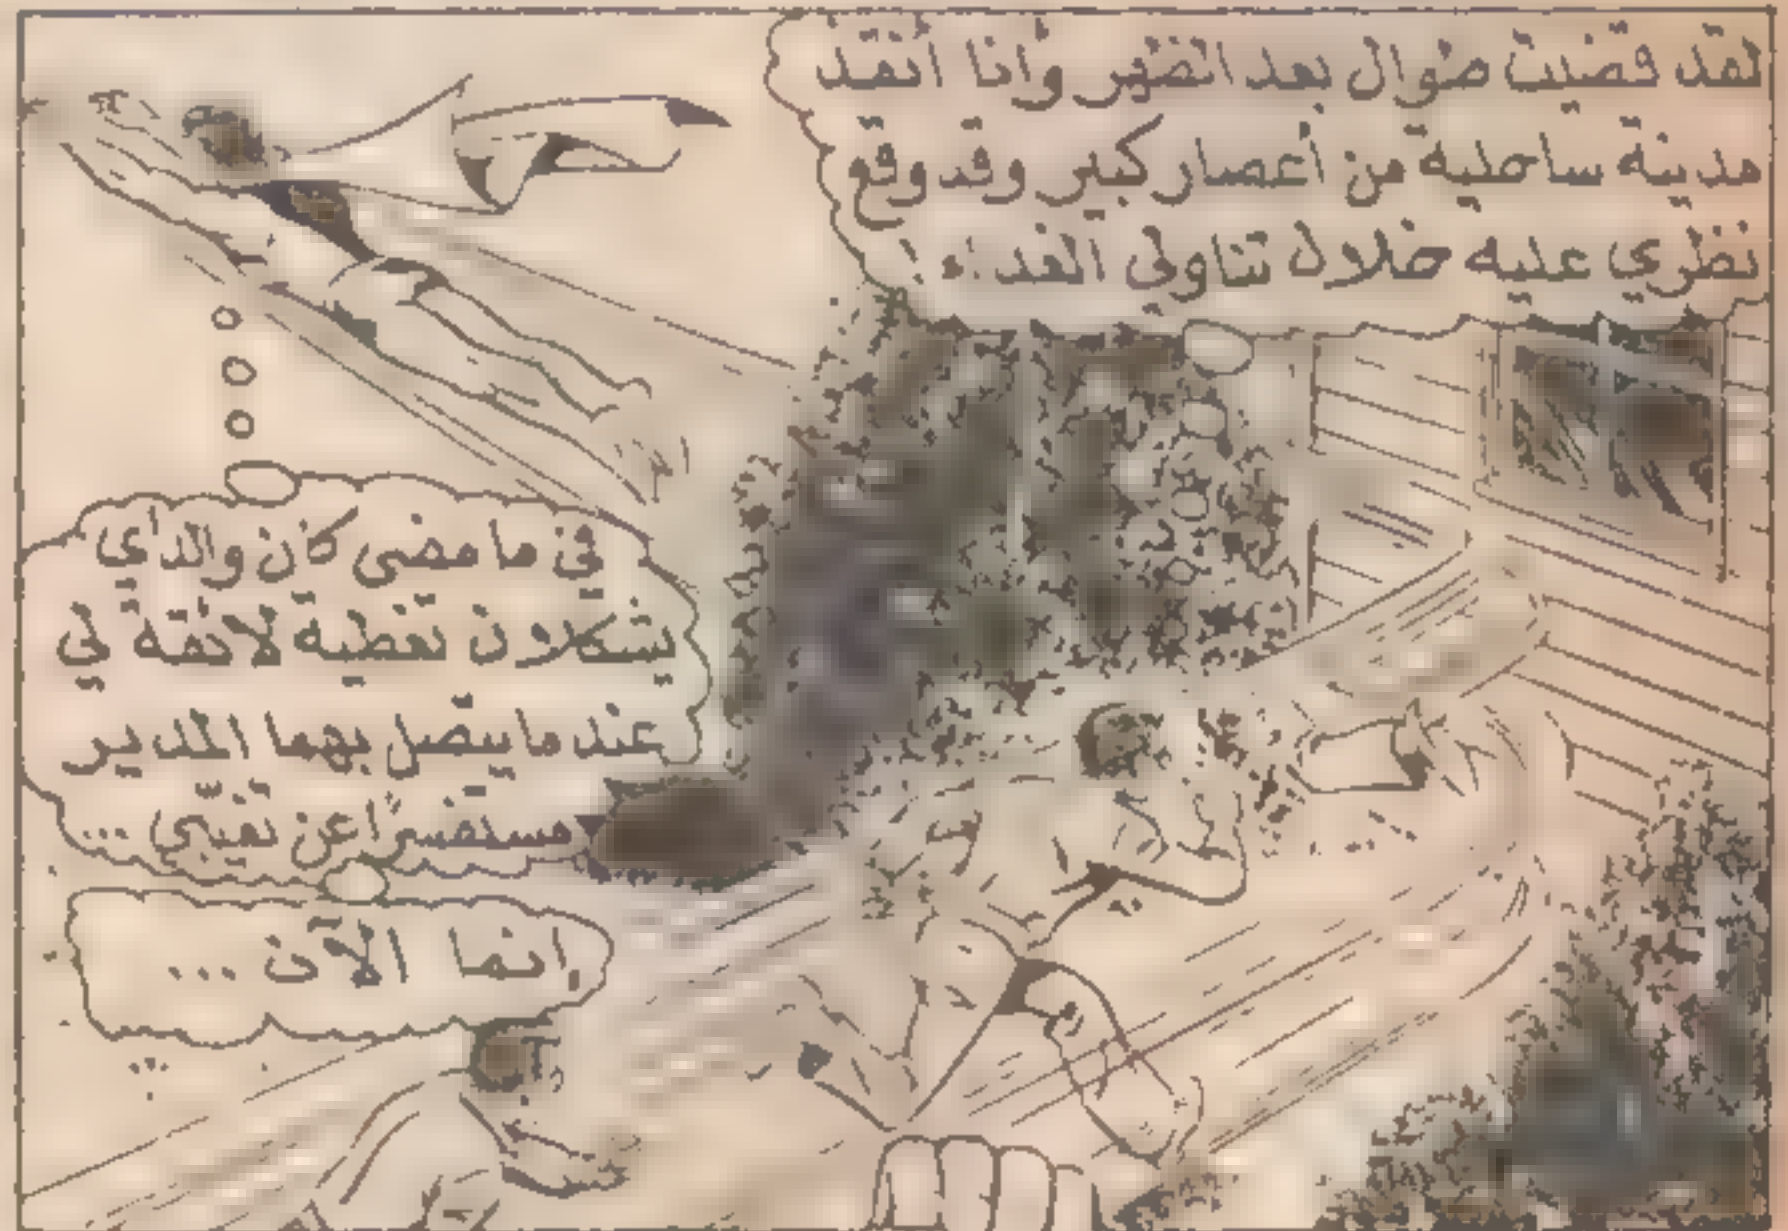 لقد قضيت طوال بعد الظهر وأنا أنقذ
مدينة ساحلية من أعصار كبير وقد وقع
نظري عليه خلال تناولي الغداء!
في ما مضى كان والدأي
يشكلان تغطية لائقة لي
عند ما يتصل بهما المدير
مستفسراً عن تغيبي ...
إنما الآن ...